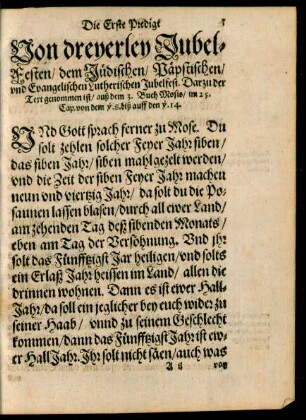 Die Erste Predigt 5
Von dreyerley Jubel-
Festen / dem Jüdischen / Päpstischen /
vnd Evangelischen Lutherischen Jubelfest. Darzu der
Text genommen ist / auß dem 3. Buch Mosis / im 25.
Cap. von dem ꝟ. 8. biß auff den ꝟ. 14.
VNd Gott sprach ferner zu Mose. Du
solt zehlen solcher Feyer Jahr siben /
das siben Jahr / siben mahl gezelt werden /
vnd die Zeit der siben Feyer Jahr machen
neun vnd viertzig Jahr / da solt du die Po-
saunen lassen blasen / durch all ewer Land /
am zehenden Tag deß sibenden Monats /
eben am Tag der Versöhnung. Vnd jhr
solt das Fünfftzigst Jar heiligen / vnd solts
ein Erlaß Jahr heissen im Land / allen die
drinnen wohnen. Dann es ist ewer Hall-
Jahr / da soll ein jeglicher bey euch wider zu
seiner Haab / vnnd zu seinem Geschlecht
kommen / dann das Fünfftzigst Jahr ist ew-
er Hall Jahr. Jhr solt nicht säen / auch was
A ij von